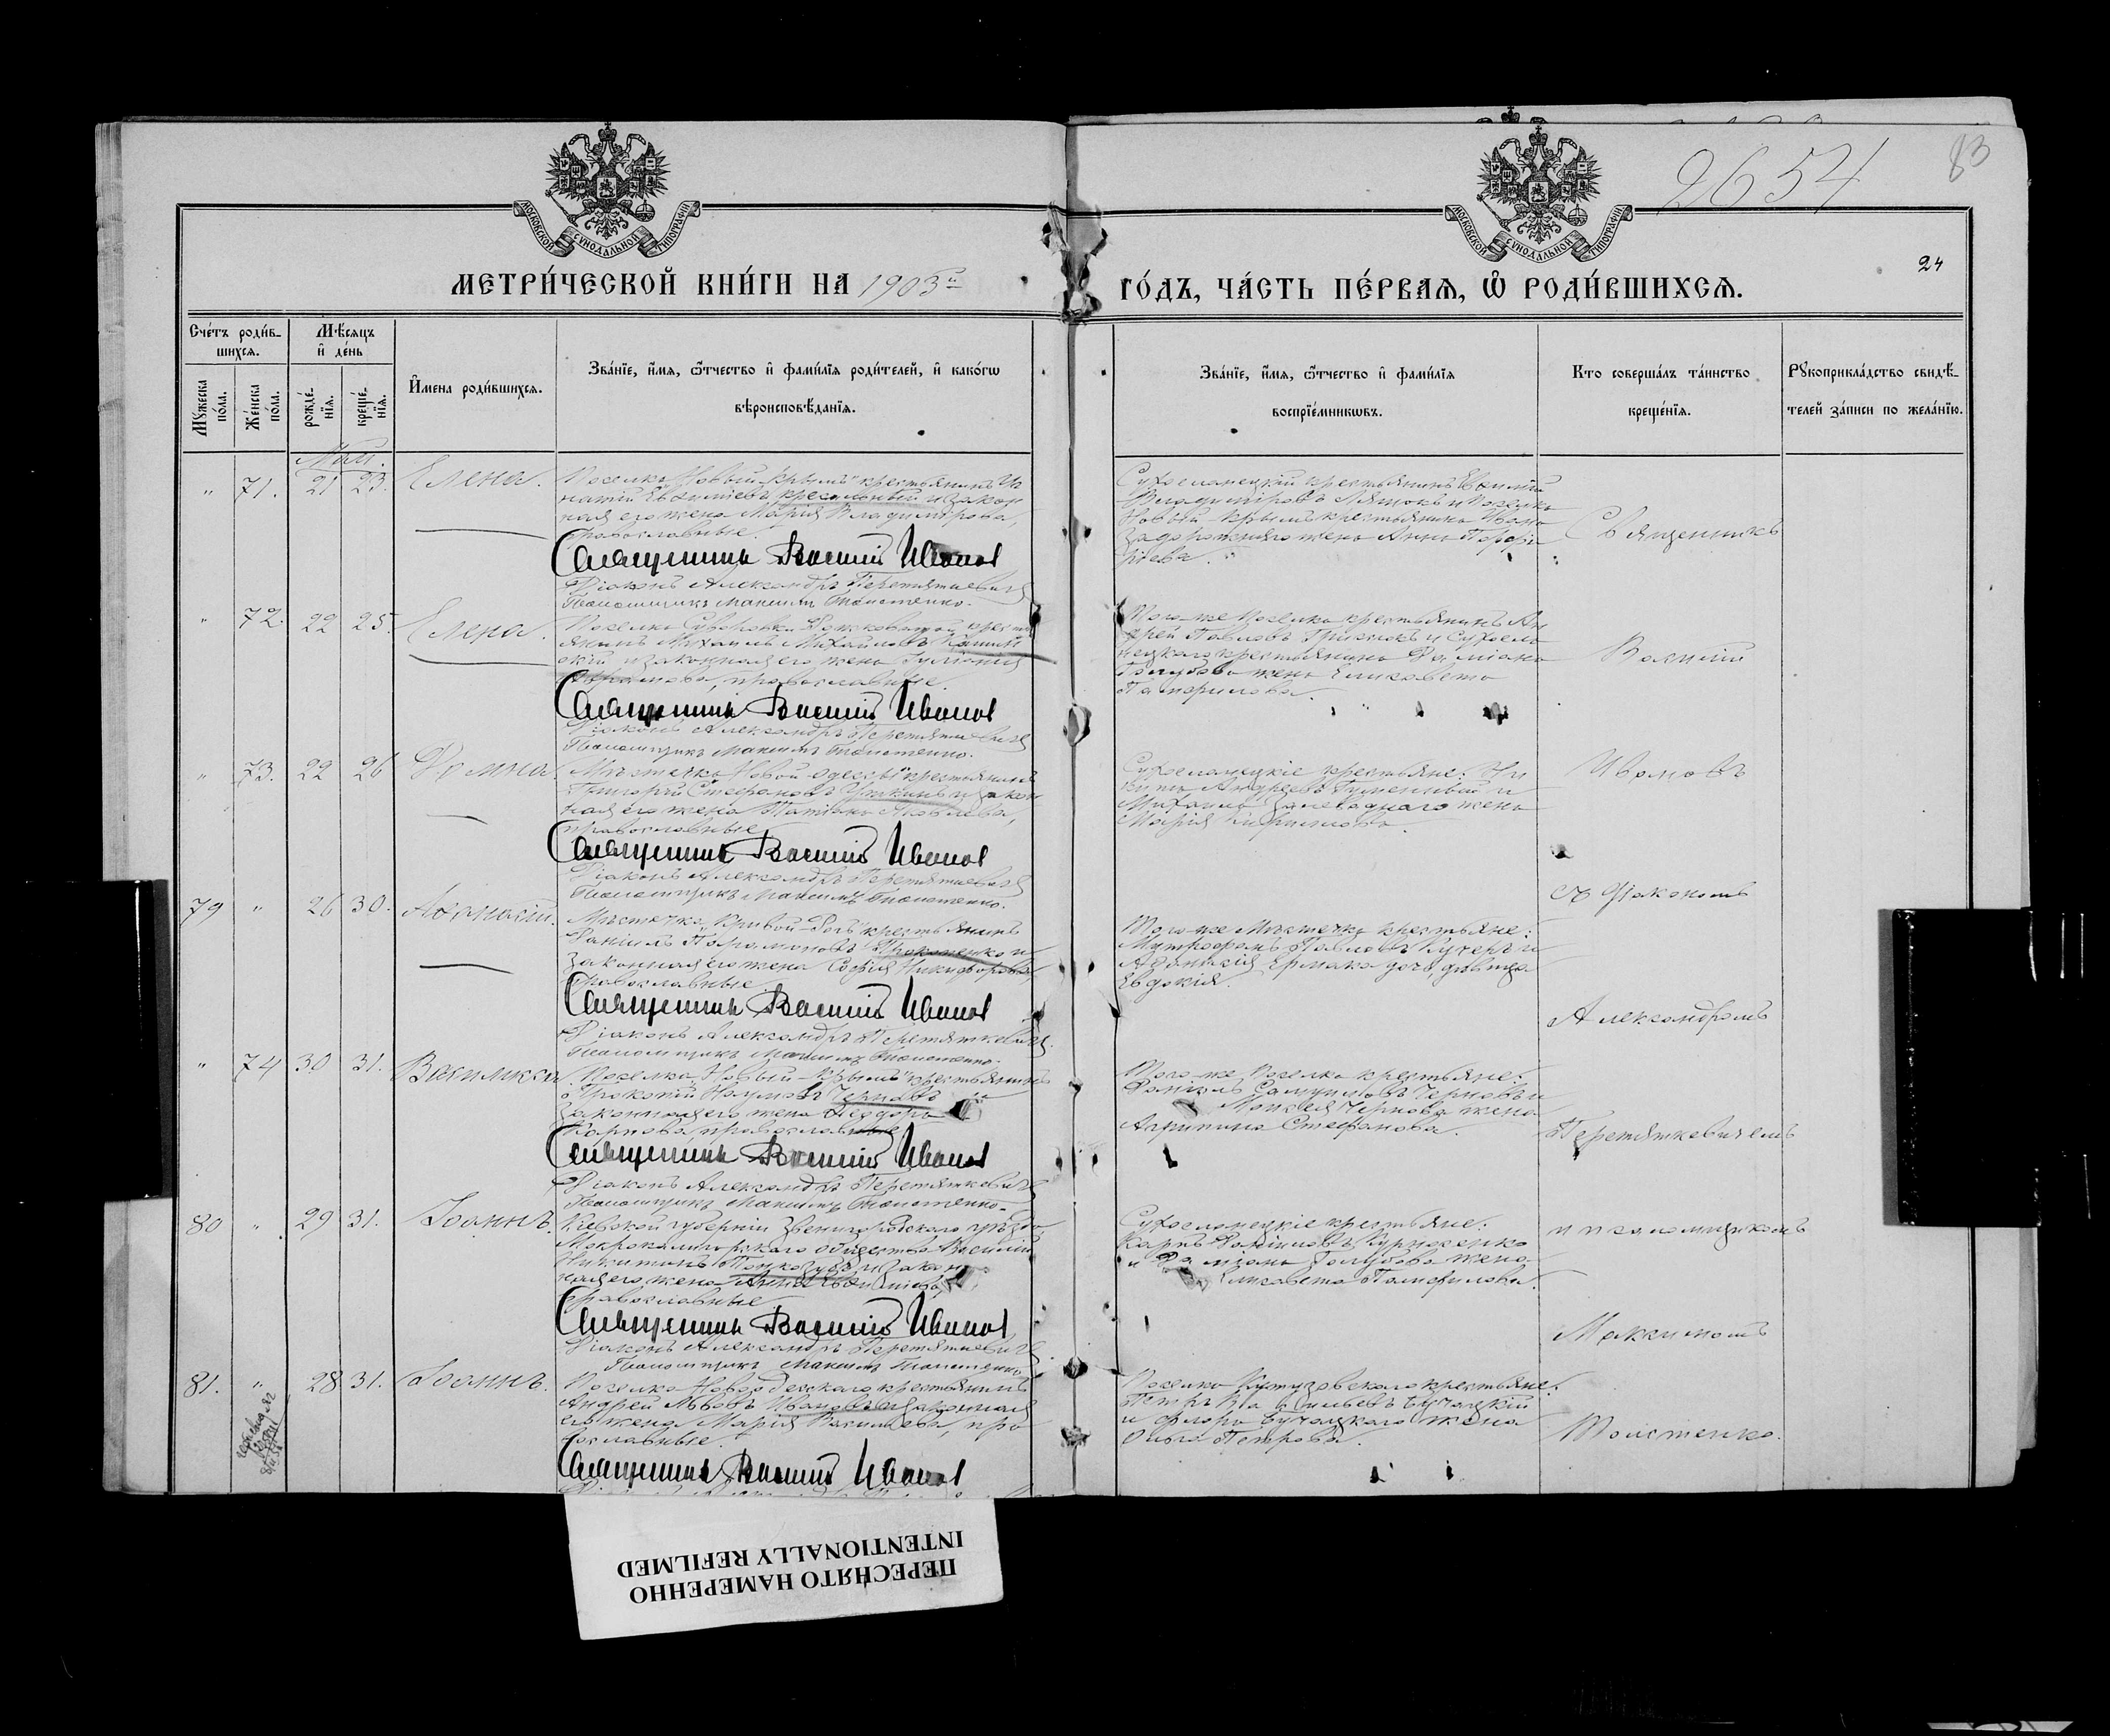 МОСКОВСКОЙ СѴНОДАЛЬНОЙ ТИПОГРАФІИ
МОСКОВСКОЙ СѴНОДАЛЬНОЙ ТИПОГРАФІИ
2654
83
24
МЕТРИ́ЧЕСКОЙ КНИ́ГИ НА 1903й
ГО́ДЪ, ЧА́СТЬ ПЕ́РВАѦ, Ѡ҆ РОДИ́ВШИХСѦ.
Сче́тъ роди́в-
шихсѧ.
Мꙋ́жеска по́ла.
Же́нска по́ла.
Мѣ́сѧцъ
и҆ де́нь
рожде́-
нїѧ.
креще́-
нїѧ.
И҆мена роди́вшихсѧ.
Зва́нїе, и҆́мѧ, ѻ҆́тчество и҆ фами́лїѧ роди́телей, и҆ како́гѡ
вѣроисповѣ́данїѧ.
Зва́нїе, и҆́мѧ, ѻ҆́тчество и҆ фами́лїѧ
воспрїе́мникѡвъ.
Кто соверша́лъ та́инство
креще́нїѧ.
Рꙋкоприкла́дство свидѣ́-
телей за́писи по жела́нїю.
Май.
" 71. 21 23. Елена.
Поселка „Новый-Крымъ" крестьянинъ Иг
натій и закон
ная его жена Марія Владимірова,
православные.
Священникъ Василій Ивановъ
Діаконъ Александръ Перетяткевичъ
Псаломщикъ Максимъ Толстенко.
Сухоеланецкій крестьянинъ Евѳимій
Владиміровъ и поселка
Новый-Крымъ крестьянина Ивана
Задорожняго жена Анна Порфи
ріева.
Священникъ
" 72. 22 25. Елена.
Поселка кресть
янинъ Михаилъ Михайловъ
скій и законная его жена
православные.
Священникъ Василій Ивановъ
Діаконъ Александръ Перетяткевичъ
Псаломщикъ Максимъ Толстенко.
Того-же поселка крестьянинъ Ан
дрей Павловъ Грицюкъ и Сухоела
нецкаго крестьянина Даміана
Голубова жена Елисавета
Памфилова.
Василій
" 73. 22 26 Домна
Мѣстечка „Новой-Одессы" крестьянинъ
Григорій Стефановъ и закон
ная его жена Татіана Яковлева,
православные
Священникъ Василій Ивановъ
Діаконъ Александръ Перетяткевичъ
Псаломщикъ Максимъ Толстенко.
Сухоеланецкіе крестьяне: Ни
кита Андреевъ и
Михаила жена
Марія Кириллова.
Ивановъ
съ діакономъ
79 " 26 30. Аѳанасій.
Мѣстечка „Кривой-Рогъ" крестьянинъ
Даніилъ Парамоновъ Прокопенко и
законная его жена Софія Никифорова,
православные.
Священникъ Василій Ивановъ
Діаконъ Александръ Перетяткевичъ.
Псаломщикъ Максимъ Толстенко.
Того-же мѣстечка крестьяне:
Митрофанъ Павловъ Кучеръ и
Ермака дочь, дѣвица
Евдокія.
Александромъ
" 74 30 31. Василисса
Поселка „Новый-Крымъ" крестьянинъ
Прокопій Наумовъ Черновъ и
законная его жена Ѳеодора
Карпова, православные
Священникъ Василій Ивановъ
Діаконъ Александръ Перетяткевичъ
Псаломщикъ Максимъ Толстенко.
Того-же поселка крестьяне:
Даніилъ Самуиловъ Черновъ и
Моисея Чернова жена
Агрипина Стефанова.
Перетяткевичемъ
80 " 29 31. Іоаннъ.
Кіевской губерніи Звенигородского уѣзда
Мокрокалигорского общества Василій
Никитинъ и закон
ная его жена Анна
православные
Священникъ Василій Ивановъ
Діаконъ Александръ Перетяткевичъ.
Псаломщикъ Максимъ Толстенко
Сухоеланецкіе крестьяне:
Карпъ Даніиловъ
и Даміана Голубова жена
Елисавета Памфилова.
и псаломщикомъ
Максимомъ
81. " 28 31. Іоаннъ.
Поселка Новоодесского крестьянинъ
Андрей Львовъ Ивановъ и законная
его жена Марія Васильева, пра
вославные.
Священникъ Василій Ивановъ
Поселка Кутузовского крестьяне:
Петръ Васильевъ Бучацкій
и Флора Бучацкаго жена
Ольга Петрова.
Толстенко.
ПЕРЕСНЯТО НАМЕРЕННО
INTENTIONALLY REFILMED